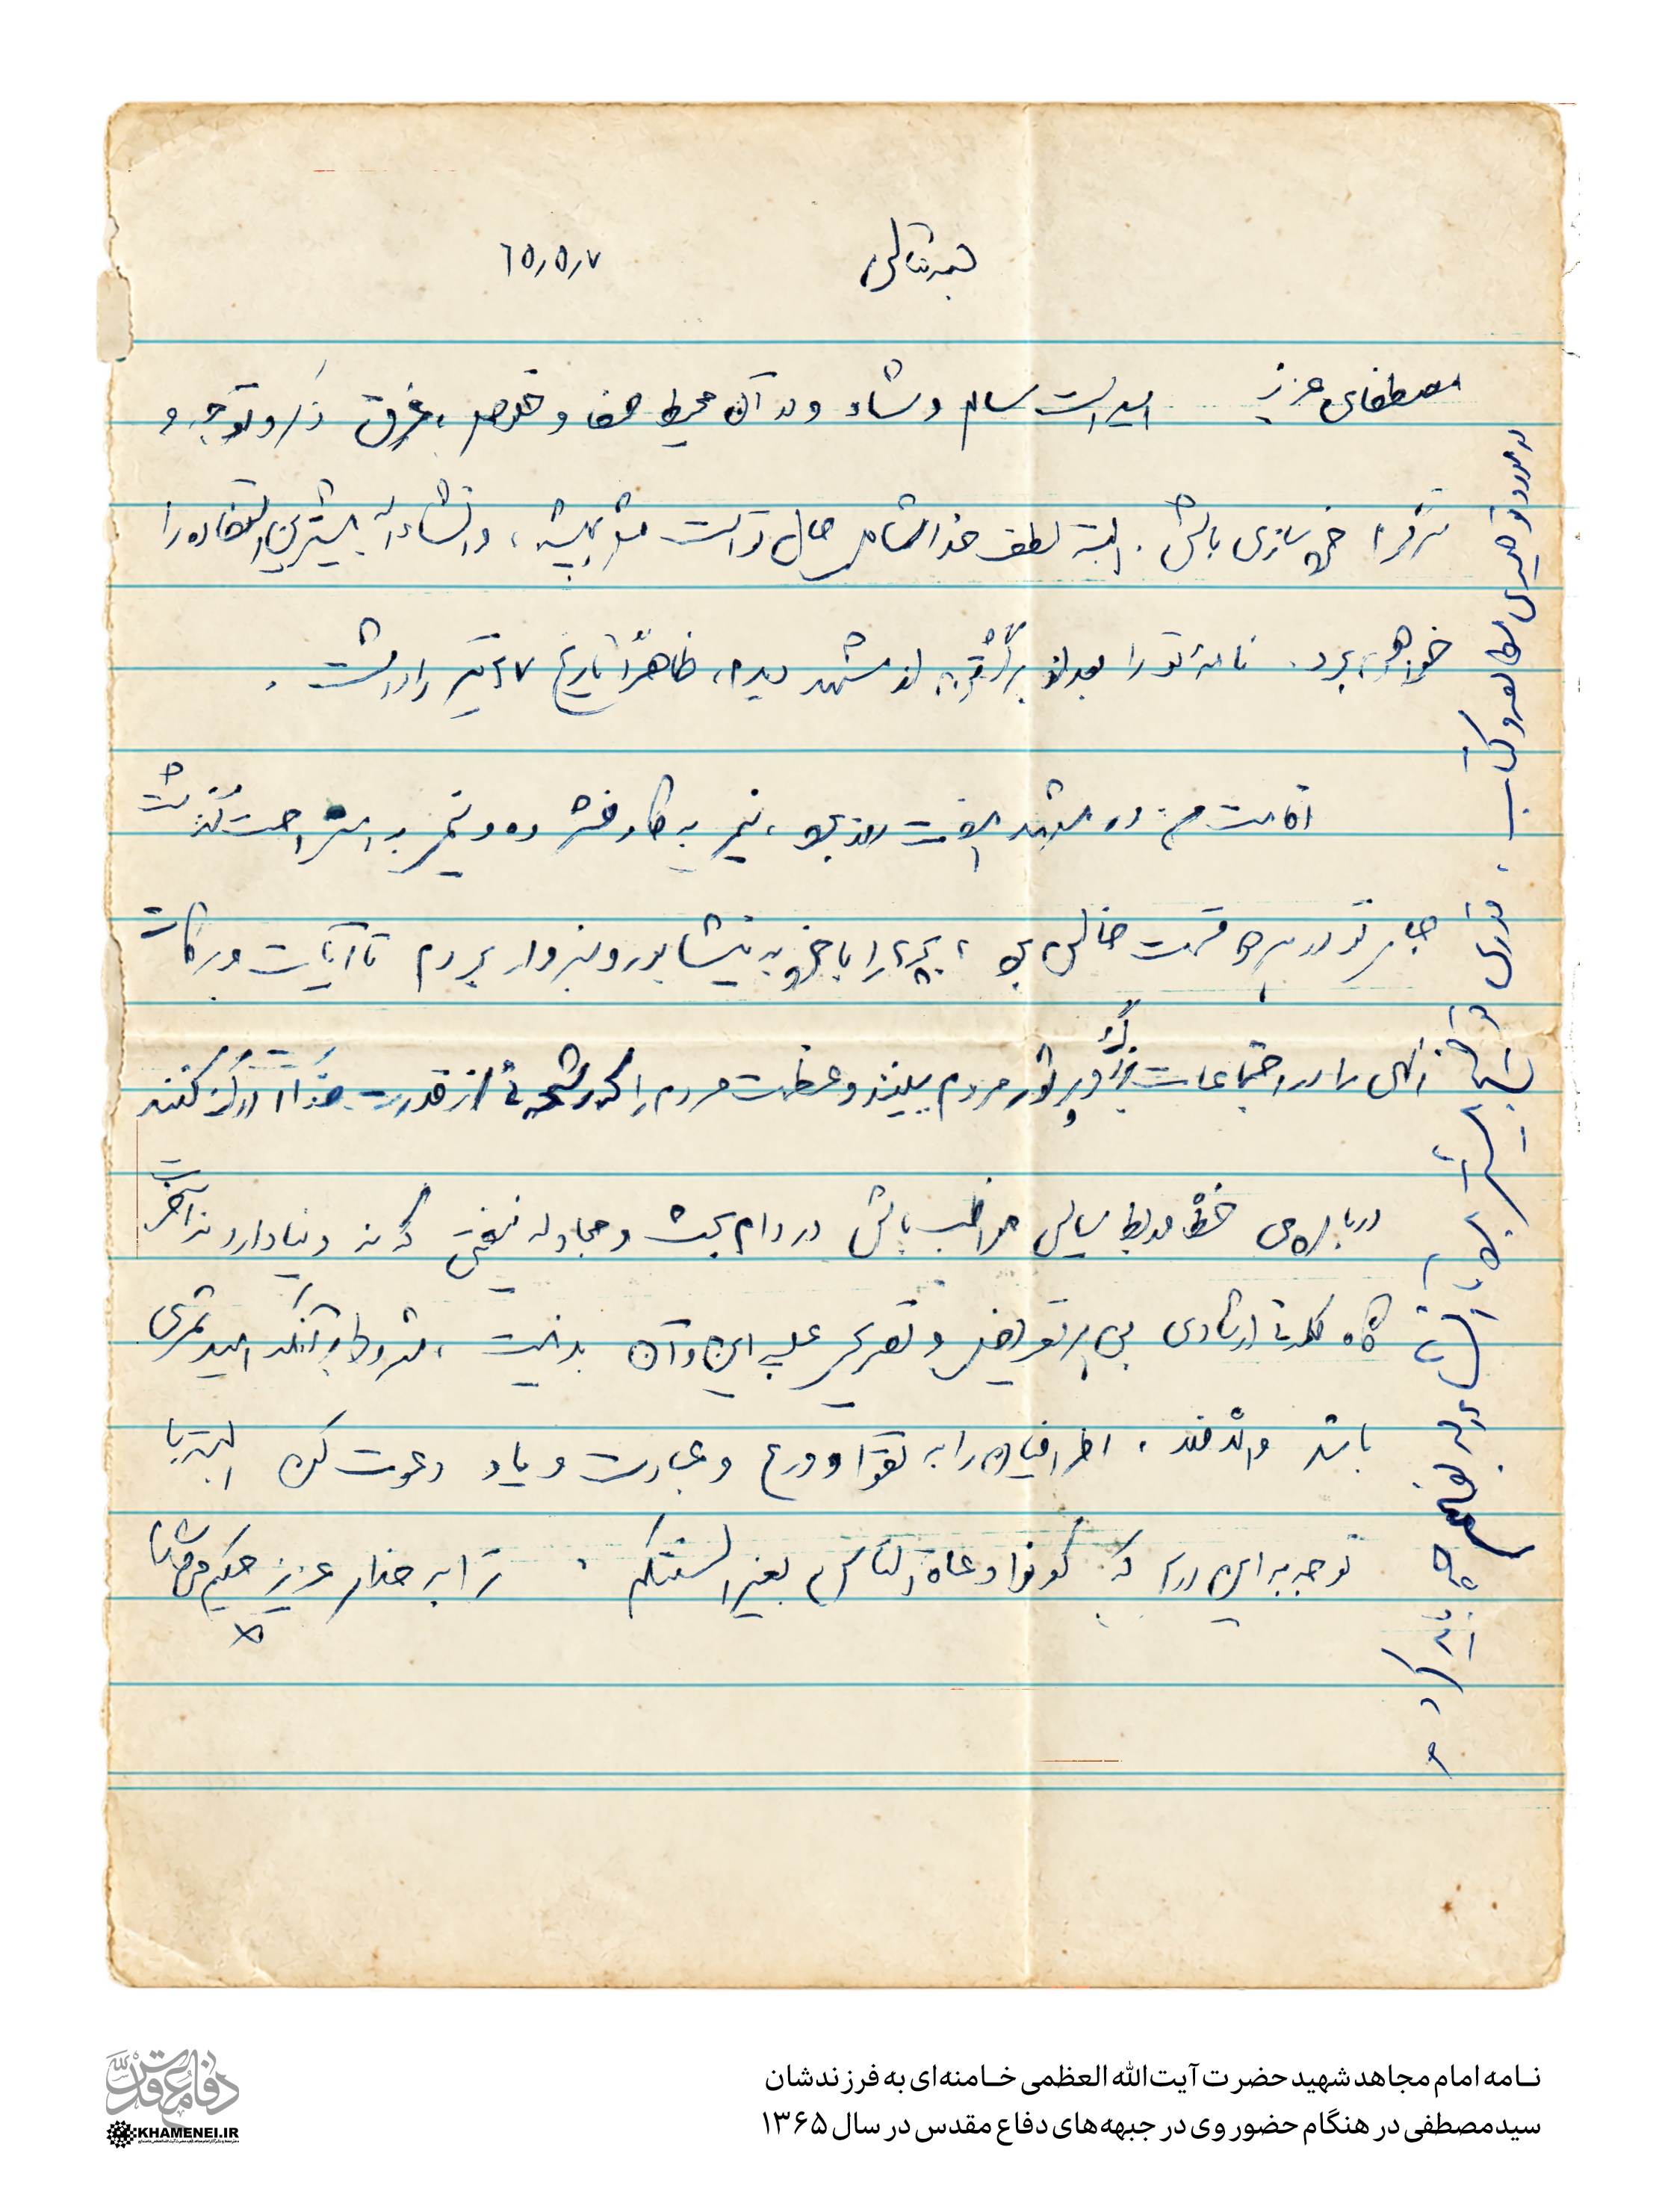 بسمه‌تعالی
۶۵/۵/۷
مصطفای عزیز امید است سالم و شاد و در آن محیط صفا و خلوص، غرق ذکر و توجه و
تفکر و خودسازی باشی. البته لطف خدا شامل حال تو است مثل همیشه، و انشاءالله بیشترین استفاده را
خواهی برد. نامه‌ی تو را بعد از برگشتن از مشهد دیدم، ظاهراً تاریخ ۲۷ تیر را داشت.
اقامت من در مشهد هفت روز بود، نیمی به کار فشرده و نیمی به استراحت گذشت
جای تو در هر دو قسمت خالی بود، بچه‌ها را با خود به نیشابور و سبزوار بردم تا آیات و برکات
الهی را در اجتماعات بزرگ و پرشور مردم ببینند و عظمت مردم را که رشحه‌ای از قدرت خداست درک کنند
درباره‌ی خط و ربط سیاسی مواظب باش در دام بحث و مجادله نیفتی که نه دنیا دارد و نه آخرت
گاه کلمه‌ای ارشادی بی هر تعریض و تصریحی علیه این و آن بد نیست، مشروط به آنکه امید ثمری
باشد والا فلا. اطرافیان را به تقوا و ورع و عبادت و یاد دعوت کن البته با
توجه به این درس که کونوا دعاة الناس بغیر السنتکم. ترا به خدای عزیز حکیم می‌سپارم
در مورد توصیه‌ی مطالعه و کتاب، قدری
نـامه امام مجاهد شهید حضرت آیت‌الله العظمی خـامنه‌ای به فرزندشان
سیدمصطفی در هنگام حضور وی در جبهه‌های دفاع مقدس در سال ۱۳۶۵
دفاع مقدس
KHAMENEI.IR